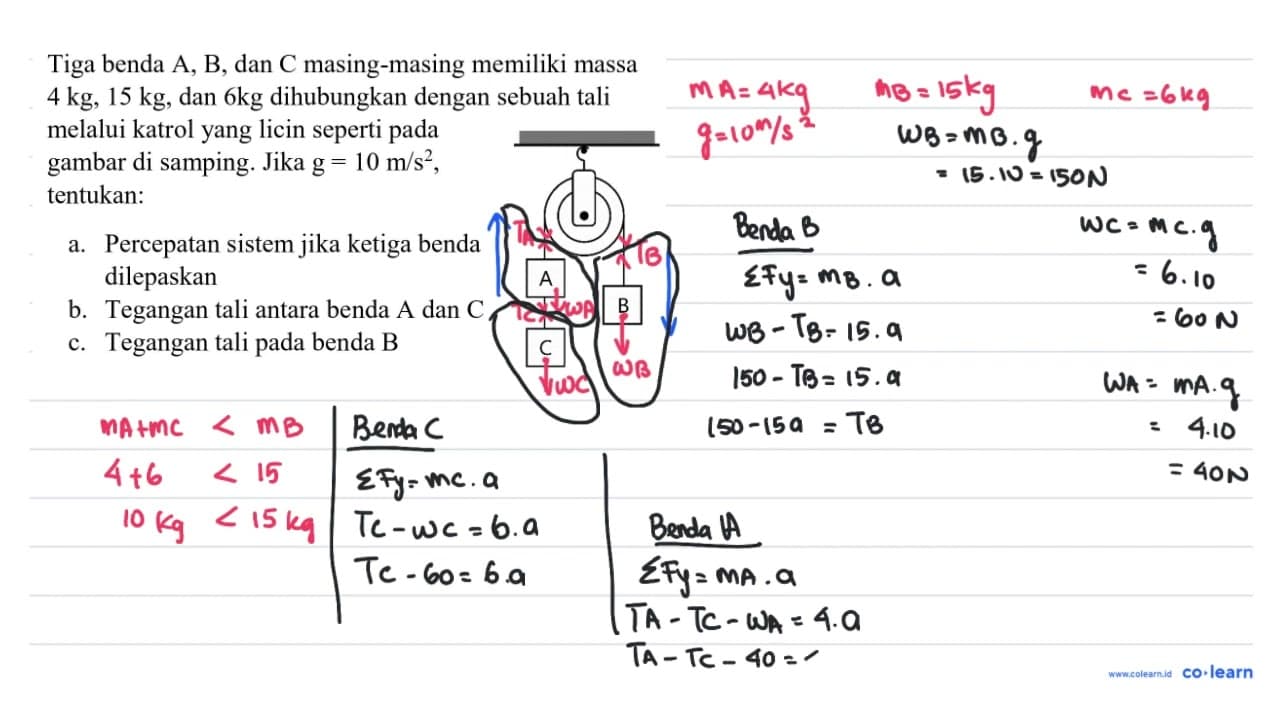 Tiga benda A, B, dan C masing-masing memiliki massa
4 kg, 15 kg, dan 6kg dihubungkan dengan sebuah tali
melalui katrol yang licin seperti pada
gambar di samping. Jika g = 10 m/s²,
tentukan:
a. Percepatan sistem jika ketiga benda
dilepaskan
b. Tegangan tali antara benda A dan C
c. Tegangan tali pada benda B
TA
TB
A
WA
B
TC
C
WB
WC
mA = 4kg
mB = 15kg
mc = 6kg
g = 10 m/s²
WB = mB . g
= 15 . 10 = 150N
Benda B
ΣFy = mB . a
WB - TB = 15 . a
150 - TB = 15 . a
150 - 15a = TB
WC = mc . g
= 6 . 10
= 60 N
WA = mA . g
= 4.10
= 40N
mA + mc < mB
4 + 6 < 15
10 kg < 15 kg
Benda C
ΣFy = mc . a
Tc - wc = 6 . a
Tc - 60 = 6 . a
Benda A
ΣFy = mA . a
TA - TC - WA = 4 . a
TA - TC - 40 =
www.colearn.id co·learn